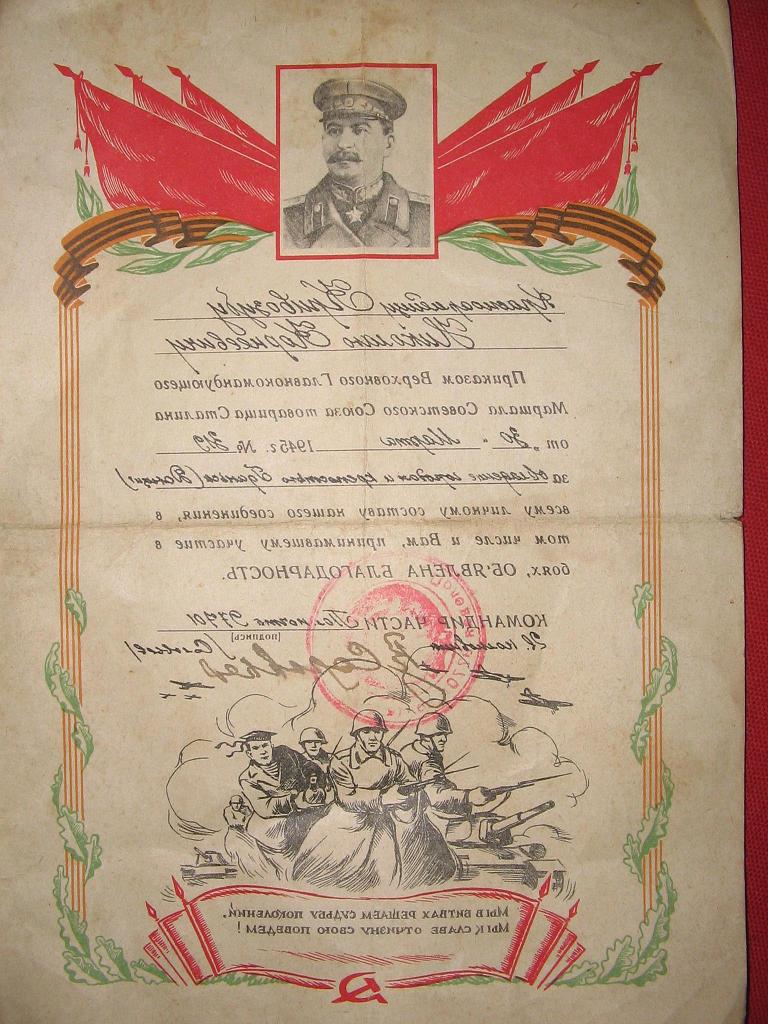 Красноармейцу Кривозубу
Николаю Корнеевичу
Приказом Верховного Главнокомандующего
Маршала Советского Союза товарища Сталина
от „30“ Марта 1945 г. № 319
за овладение городом и крепостью Гданьск (Данциг)
всему личному составу нашего соединения, в
том числе и Вам, принимавшему участие в
боях, ОБ'ЯВЛЕНА БЛАГОДАРНОСТЬ.
КОМАНДИР ЧАСТИ Пол. почта 97701
(подпись)
МЫ В БИТВАХ РЕШАЕМ СУДЬБУ ПОКОЛЕНИЙ,
МЫ К СЛАВЕ ОТЧИЗНУ СВОЮ ПОВЕДЕМ!